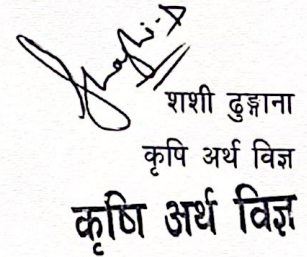 शशी ढुङ्गाना
कृषि अर्थ विज्ञ
कृषि अर्थ विज्ञ